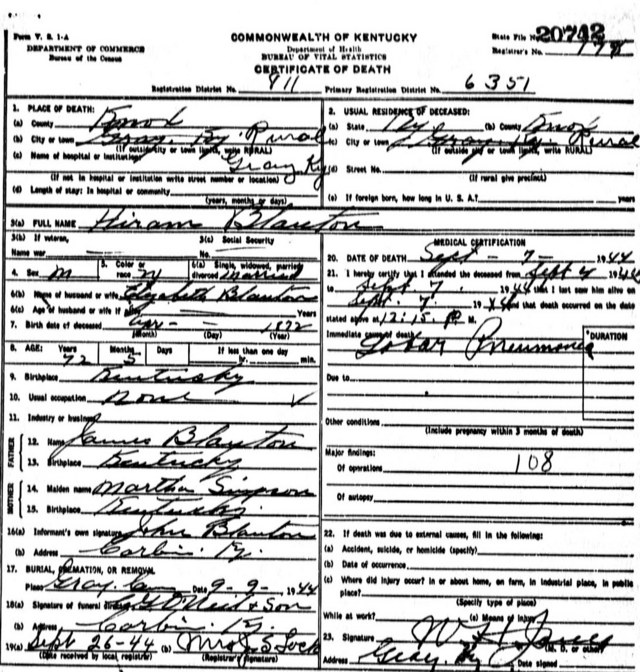 Form V. S. 1-A
DEPARTMENT OF COMMERCE
Bureau of the Census
COMMONWEALTH OF KENTUCKY
Department of Health
BUREAU OF VITAL STATISTICS
CERTIFICATE OF DEATH
State File No. 20742
Registrar's No. 178
Registration District No. 811
Primary Registration District No. 6351
1. PLACE OF DEATH:
(a) County Knox
(b) City or town Gray, Ky Rural
(If outside city or town limits, write RURAL)
(c) Name of hospital or institution Gray Ky
(If not in hospital or institution write street number or location)
(d) Length of stay: In hospital or community
(years, months or days)
2. USUAL RESIDENCE OF DECEASED:
(a) State Ky (b) County Knox
(c) City or town Gray, Ky. Rural
(If outside city or town limits, write RURAL)
(d) Street No.
(If rural give precinct)
(e) If foreign born, how long in U. S. A.? years
3(a) FULL NAME Hiram Blanton
3(b) If veteran, name war
3(c) Social Security No.
4. Sex M 5. Color or race W 6(a) Single, widowed, married, divorced married
6(b) Name of husband or wife Elizabeth Blanton
6(c) Age of husband or wife if alive
7. Birth date of deceased Apr - 1872
(Month) (Day) (Year)
8. AGE: Years 72 Months 5 Days If less than one day hr. min.
9. Birthplace Kentucky
10. Usual occupation None
11. Industry or business
FATHER
12. Name James Blanton
13. Birthplace Kentucky
MOTHER
14. Maiden name Martha Simpson
15. Birthplace Kentucky
16(a) Informant's own signature John Blanton
(b) Address Corbin Ky.
17. BURIAL, CREMATION, OR REMOVAL
Place Gray Cem Date 9-9-1944
18(a) Signature of funeral director O'Neil & Son
(b) Address Corbin Ky.
19(a) Sept 26-44 (b) Mrs J S Lock
(Date received by local registrar) (Registrar's signature)
MEDICAL CERTIFICATION
20. DATE OF DEATH Sept - 7 - 1944
21. I hereby certify that I attended the deceased from Sept 4 1944
to Sept. 7. 1944 that I last saw him alive on
Sept. 7. 1944 that death occurred on the date
stated above at 12:15 P M.
Immediate cause of death
Lobar Pneumonia
DURATION
Due to
Other conditions
(Include pregnancy within 3 months of death)
Major findings:
Of operations 108
Of autopsy
22. If death was due to external causes, fill in the following:
(a) Accident, suicide, or homicide (specify)
(b) Date of occurrence
(c) Where did injury occur? In or about home, on farm, in industrial place, in public
place?
(Specify type of place)
While at work? (e) Means of injury
23. Signature W
(M. D. or other)
Address Gray, Ky Date signed